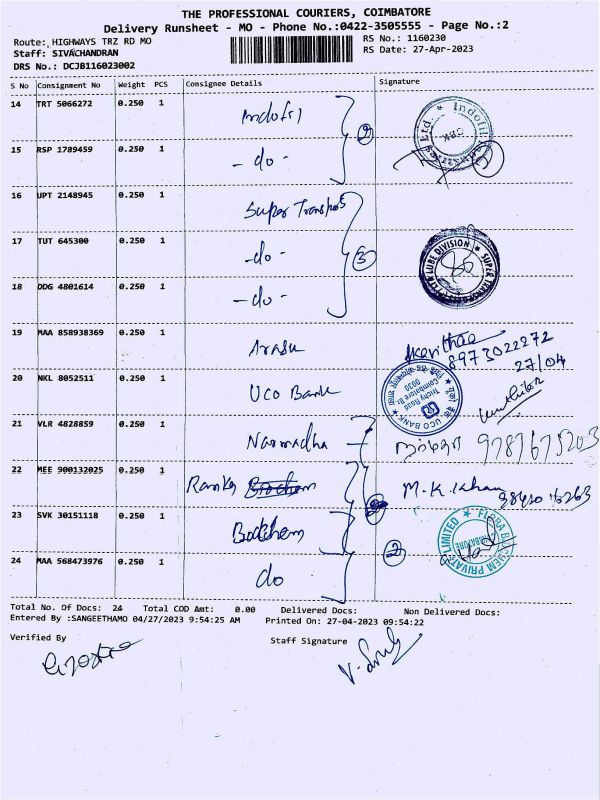 THE PROFESSIONAL COURIERS, COIMBATORE
Delivery Runsheet - MO - Phone No.:0422-3505555 - Page No.:2
Route: HIGHWAYS TRZ RD MO
RS No.: 1160230
Staff: SIVACHANDRAN
RS Date: 27-Apr-2023
DRS No.: DCJB116023002
S No Consignment No Weight PCS Consignee Details Signature
14 TRT 5066272 0.250 1 Indofil
Indofil
15 RSP 1789459 0.250 1 - do -
2
16 UPT 2148945 0.250 1 Super Transports
17 TUT 645300 0.250 1 - do -
3
LUBE DIVISION ★ SUPER TRANSPORTS
18 DDG 4801614 0.250 1 - do -
19 MAA 858938369 0.250 1 Arasu
8973022272
27/04
20 NKL 8052511 0.250 1 UCO Bank
UCO BANK
Trichy Road
Coimbatore
21 VLR 4828859 0.250 1 Narmadha
22 MEE 900132025 0.250 1
M.K.Khan
23 SVK 30151118 0.250 1
PRIVATE LIMITED
24 MAA 568473976 0.250 1 do
2
Total No. Of Docs: 24 Total COD Amt: 0.00 Delivered Docs: Non Delivered Docs:
Entered By :SANGEETHAMO 04/27/2023 9:54:25 AM Printed On: 27-04-2023 09:54:22
Verified By
Staff Signature